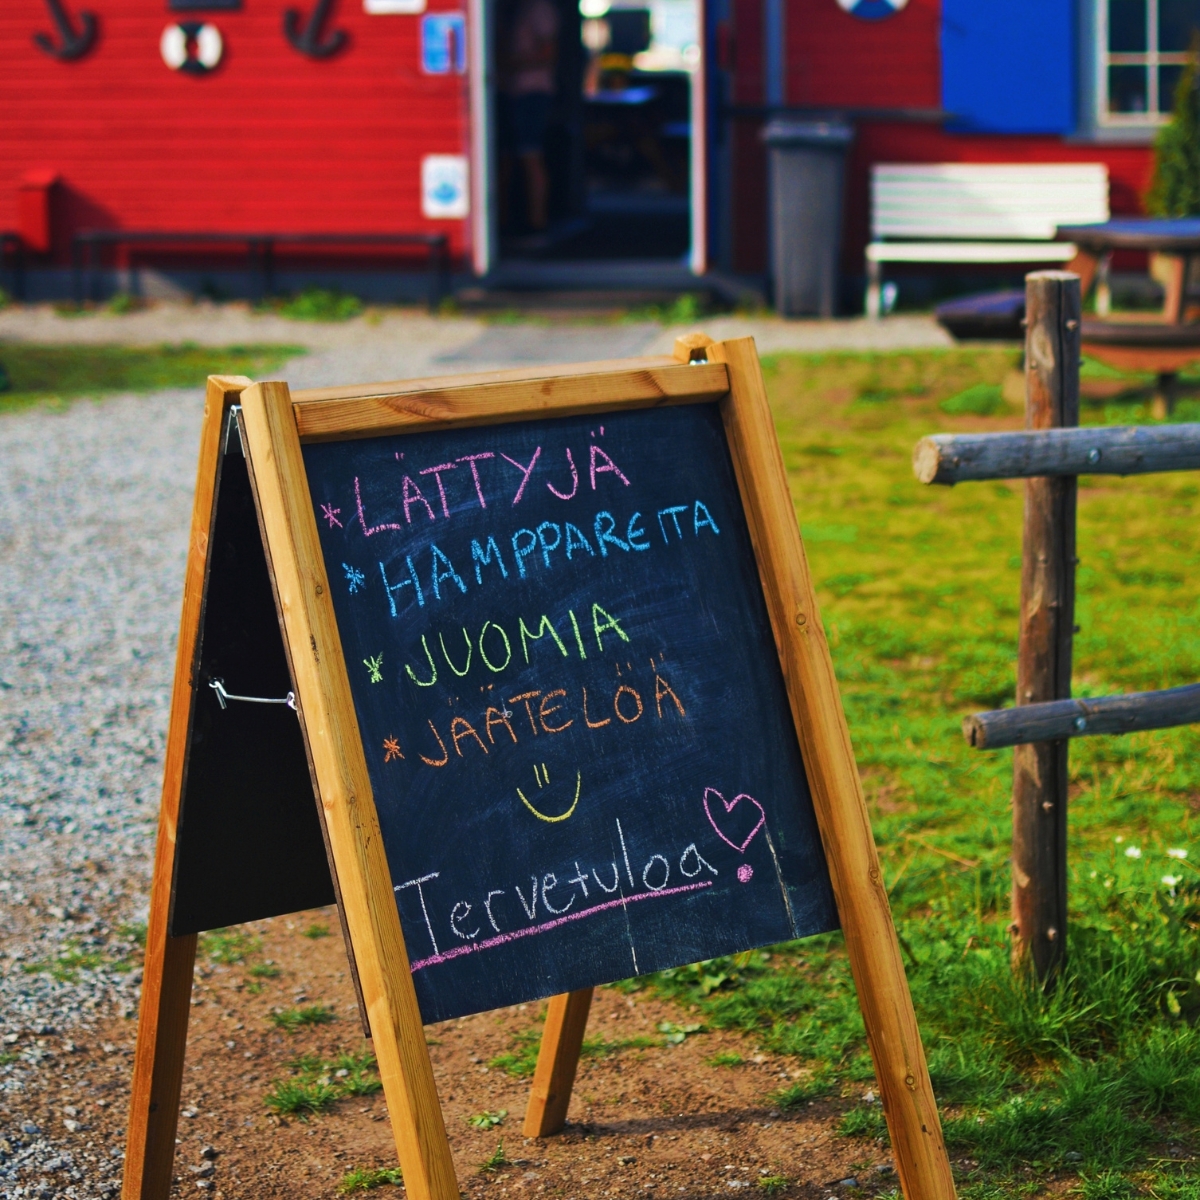 * LÄTTYJÄ
* HAMPPAREITA
* JUOMIA
* JÄÄTELÖÄ
Tervetuloa!